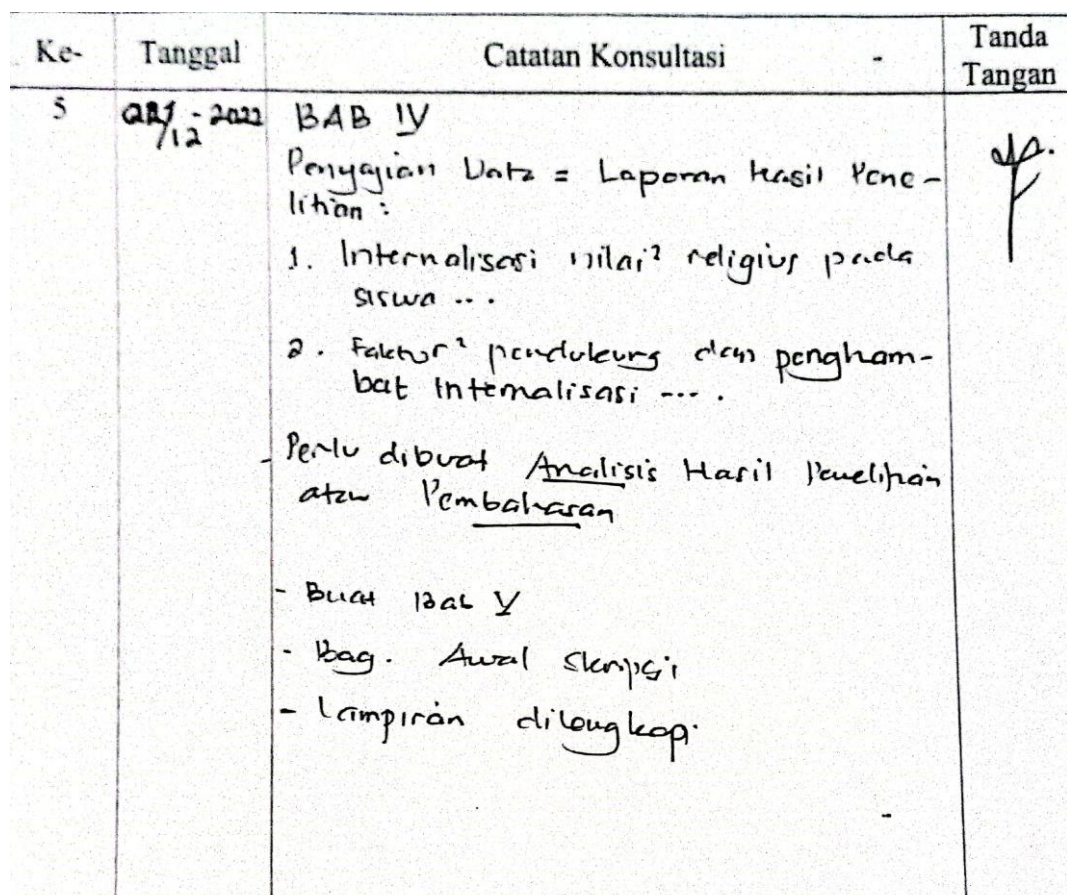 Ke- Tanggal Catatan Konsultasi - Tanda Tangan
5 /12 - 2022 BAB IV
Penyajian Data = Laporan Hasil Pene-
litian :
1. Internalisasi nilai² religius pada
siswa ...
2. Faktor² pendukung dan pengham-
bat Internalisasi ... .
- Perlu dibuat Analisis Hasil Penelitian
atau Pembahasan
- Buat Bab V
- Bag. Awal Skripsi
- Lampiran dilengkapi